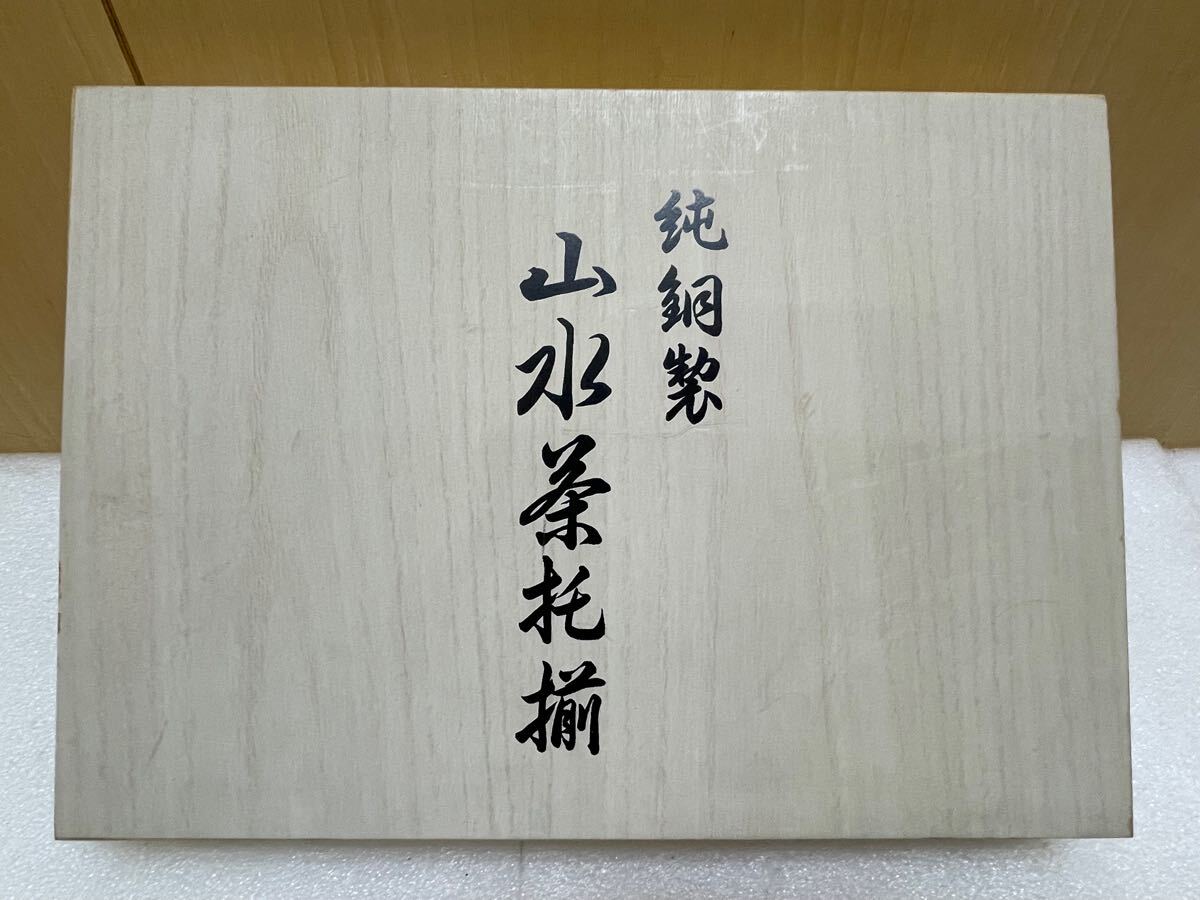 純銅製
山水茶托揃